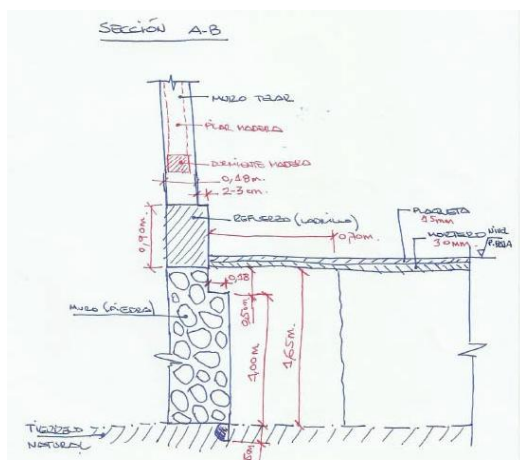 SECCIÓN A-B
MURO TELAR
PILAR MADERA
DURMIENTE MADERA
0,18m.
2-3 cm.
REFUERZO (LADRILLO)
0,90m.
0,70m.
PLAQUETA
15mm
MORTERO
30mm
NIVEL
P. BAJA
0,18
MURO (PIEDRA)
1,00m.
1,65m.
TERRENO
NATURAL